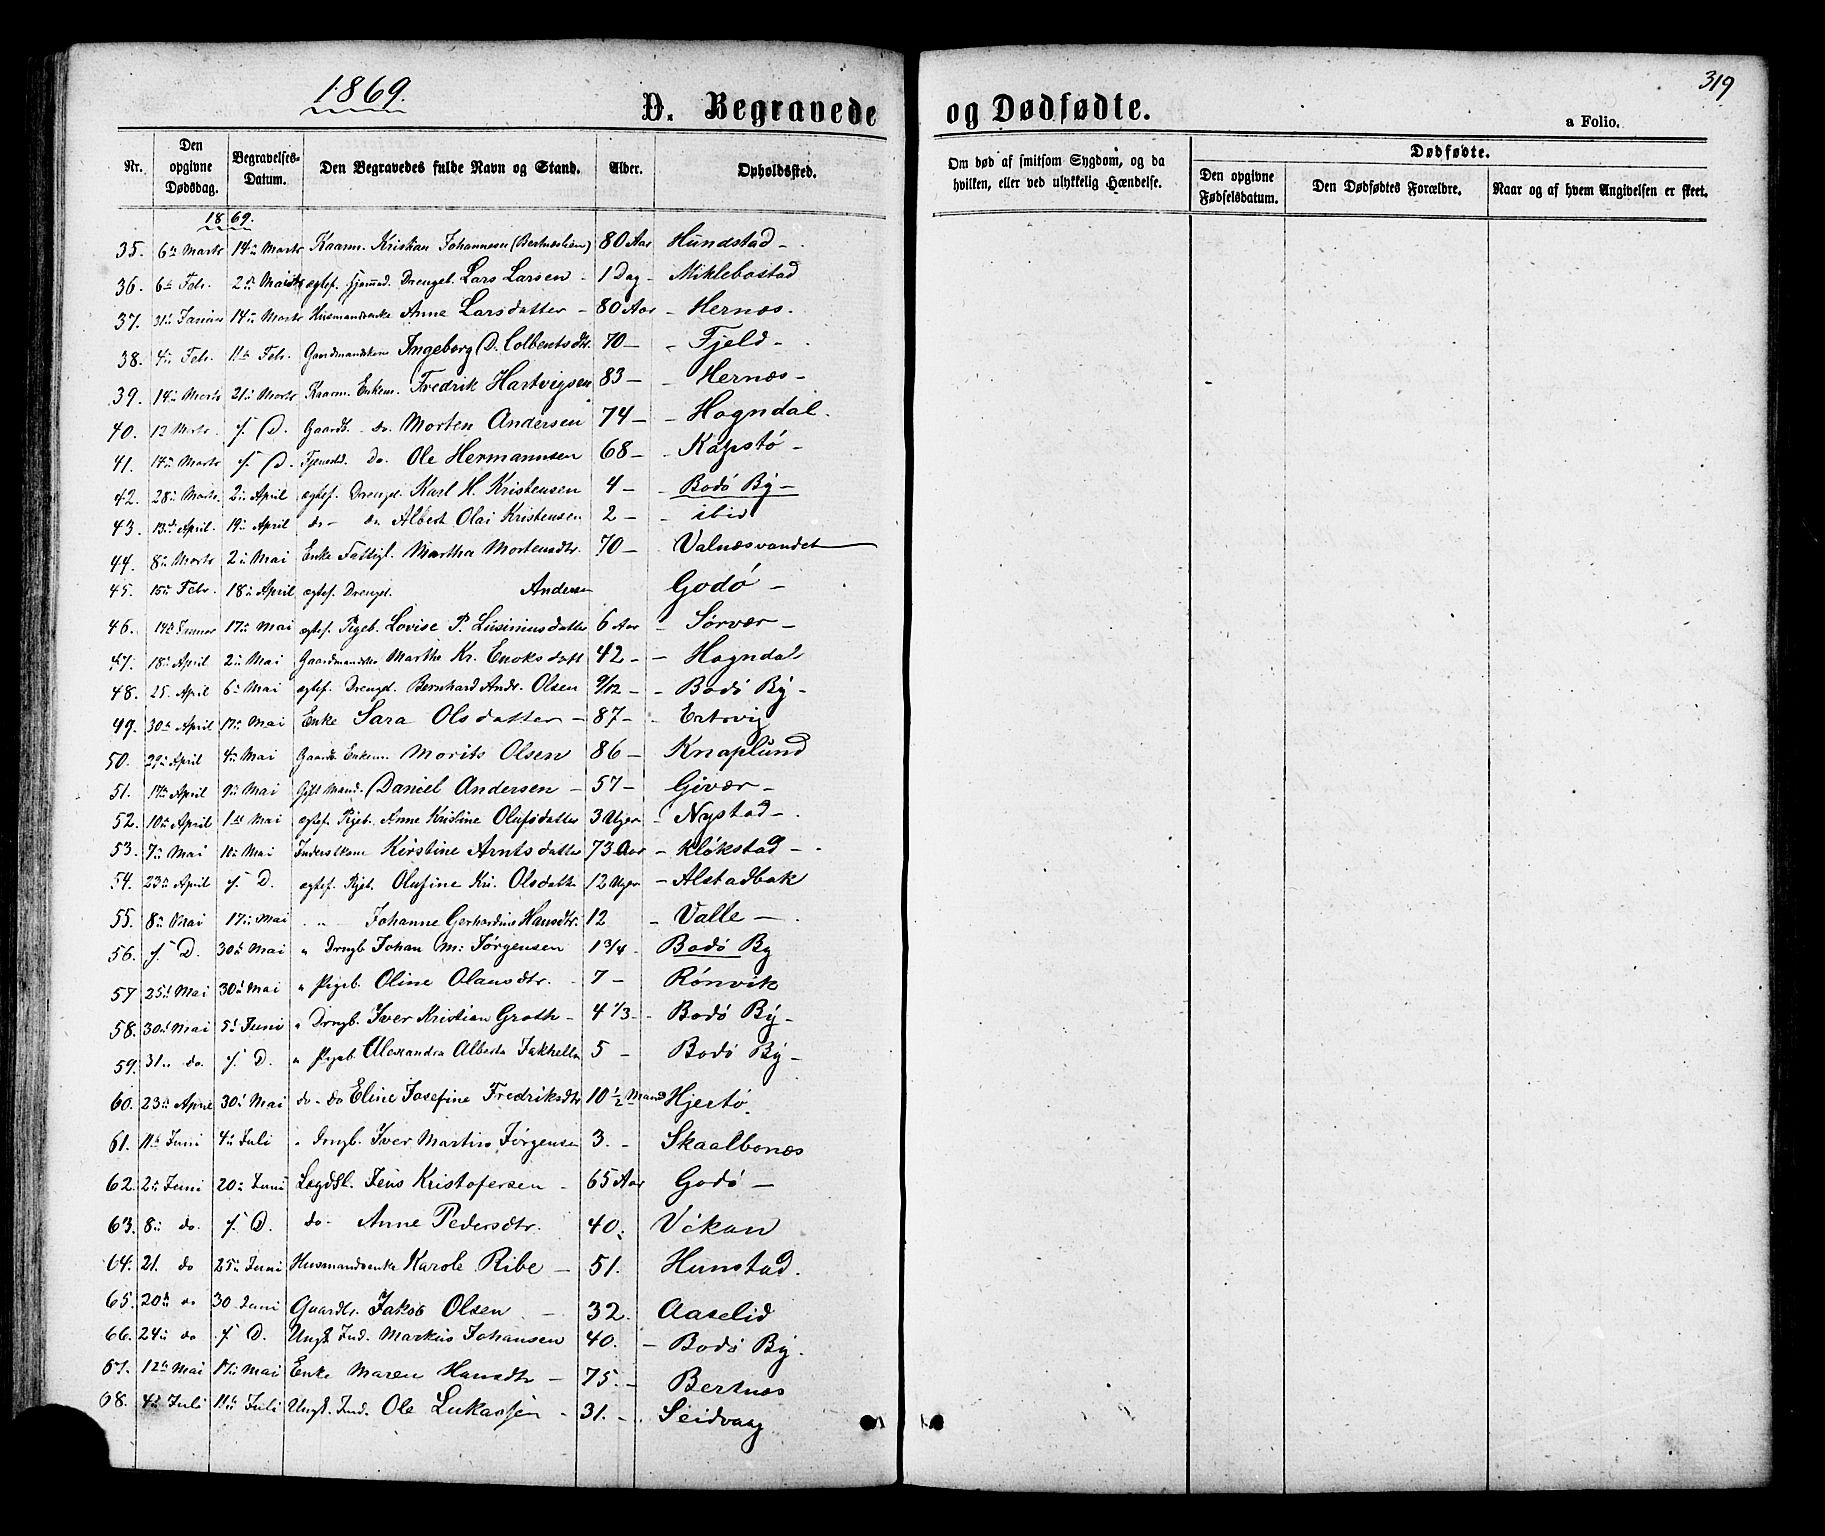 1869.
319
D. Begravede og Dødfødte.
a Folio.
Nr. Den opgivne Dødsdag. Begravelses-Datum. Den Begravedes fulde Navn og Stand. Alder. Opholdssted.
Om død af smitsom Sygdom, og da hvilken, eller ved ulykkelig Hændelse.
Dødfødte.
Den opgivne Fødselsdatum. Den Dødfødtes Forældre. Naar og af hvem Angivelsen er skeet.
1869.
35. 6te Marts 14de Marts Kaarm. Kristian Johannesen 80 Aar Hundstad -
36. 6te Febr. 2den ægtef. hjemmed. Drengeb. Lars Larsen - 1 Dag - Miklebostad
37. 31te Januar 14de Marts Husmandsenke Anne Larsdatter - 80 Aar - Hernæs.
38. 4de Febr. 11te Febr. Gaardmandskone Ingeborg D. Colbentsdtr. 70 - - Fjeld -
39. 14de Marts 21de Marts Kaarm. Enkem. Fredrik Hartvigsen 83 - - Hernæs -
40. 12 Marts f. D. Gaardb. do. Morten Andersen 74 - - Hogndal.
41. 17de Marts f. D. Fjenestd. do. Ole Hermannsen 68 - - Kapstø -
42. 28de Marts 2den April ægtef. Drengb. Karl H. Kristensen 4 - - Bodø By -
43. 13de April 19de April do - do Albert Olai Kristensen 2 - - ibid
44. 8de Marts 2den Mai Enke Fattigl. Martha Mortensdtr. 70 - Valnæsvandet
45. 15de Febr. 18de April ægtef. Drengb. Andersen Godø -
46. 14de Januar 17de Mai ægtef. Pigeb. Lovise P. Lusiniusdatter 6 Aar - Sørvær -
47. 18de April 2den Mai Gaardmandsko Marthe Kr. Enoksdatt 42 - - Hogndal
48. 25. April 6te Mai ægtef. Drengb. Bernhard Andr. Olsen 9/12 - - Bodø By -
49. 30te April 17de Mai Enke Sara Olsdatter - 87 - - Ertsvig
50. 29de April 4de Mai Gaardb. Enkem. Morits Olsen 86 - Knaplund
51. 17de April 9de Mai Gift Mand. Daniel Andersen - 57 - Givær -
52. 10de April 1ste Mai ægtef. Pigeb. Anne Kristine Olufsdatter 3 Uger - Nystad -
53. 7de Mai 10de Mai Inderstkone Kirstine Arntsdatter 73 Aar - Kløkstad -
54. 23de April f. D. ægtef. Pigeb. Olufine Kr. Olsdatte 12 Uger - Alstadbak
55. 8de Mai 17de Mai " " Johanne Gerhardine Hansdtr. 12 - Valle -
56. f. D. 30de Mai " Drngb. Johan M. Jørgensen 1 3/4 - Bodø By
57 25de Mai 30de Mai " Pigeb. Oline Olausdtr. - 7 - Rønvik
58. 30de Mai 5te Juni " Drngb. Iver Kristian Groth - 4 1/3 - - Bodø By -
59. 31te do. f. D. " Pigeb Alexandra Alberta Jakhelln 5 - Bodø By -
60. 23de April 30de Mai do - do Eline Josefine Fredriksdtr 10 1/2 Maand Hjertø.
61. 11te Juni 4de Juli " Drngb. Iver Martin Jørgensen 3. - Skaalbonæs
62. 2den Juni 20de Juni Lægdsl. Jens Kristofersen - 65 Aar Godø -
63. 8de do. f. D. do - Anne Pedersdtr. 40. Vikan
64. 21. do 25de Juni Husmandsenke Karole Ribe - 51. Hunstad.
65. 20de do 30 Juni Gaardbr. Jakob Olsen - 32. Aaselid
66. 24de do f. D. Ungk. Ind. Markus Johansen 40. - Bodø By.
67. 12te Mai 17de Mai Enke Maren Hansdtr - 75. - Bertnes
68. 4de Juli 11te Juli Ungk. Ind. Ole Lukassen - 31. - Seidvaag